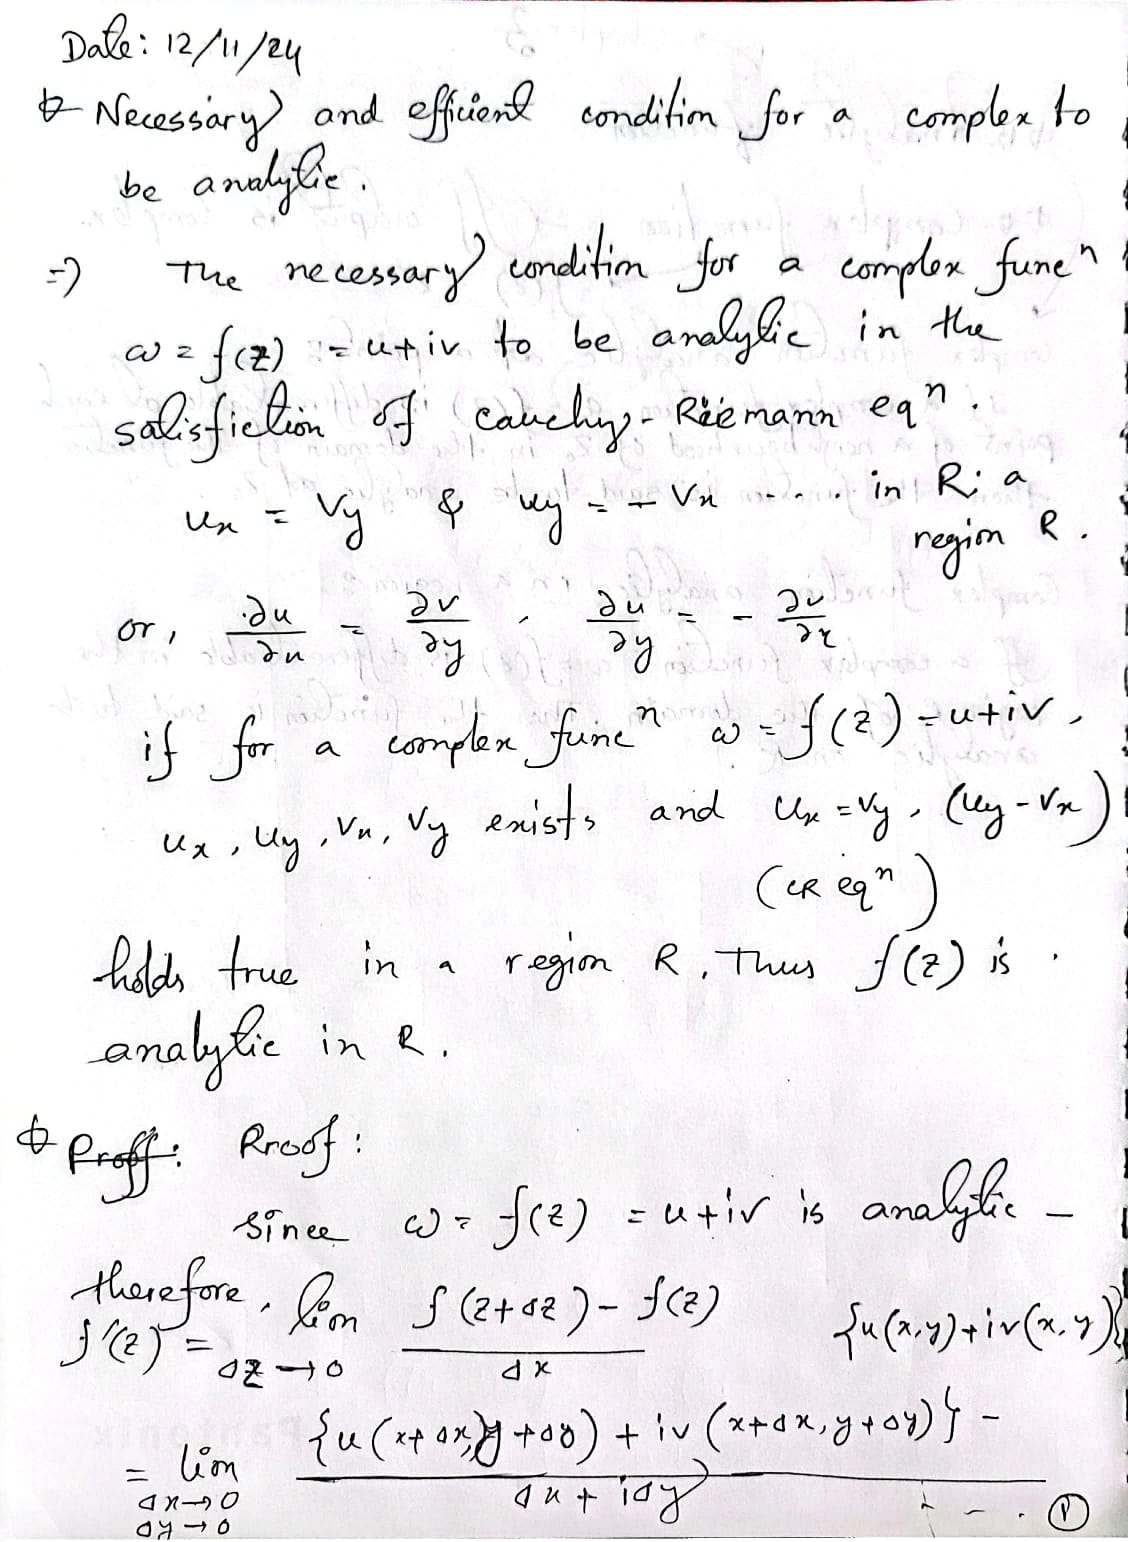 Date: 12/11/24
Necessary and efficient condition for a complex to
be analytic.
=) The necessary condition for a complex funcⁿ
ω = f(z) = u+iv to be analytic in the
satisfiction of cauchy-Rieemann eqⁿ.
uₓ = vy & uy = - vₓ ..... in R; a
region R.
or, ∂u/∂x = ∂v/∂y , ∂u/∂y = - ∂v/∂x
if for a complex funcⁿ ω = f(z) = u+iv,
uₓ, uy, vₓ, vy exists and uₓ = vy, (uy - vₓ)
(CR eqⁿ)
holds true in a region R, Thus f(z) is
analytic in R.
Proff: Proof:
since ω = f(z) = u+iv is analytic -
therefore, f'(z) = lim Δz→0 f(z+Δz) - f(z) / Δx {u(x,y)+iv(x,y)}
= lim Δx→0 Δy→0 {u(x+Δx, y+Δy) + iv(x+Δx, y+Δy)} - / Δx + iΔy
- - . ①